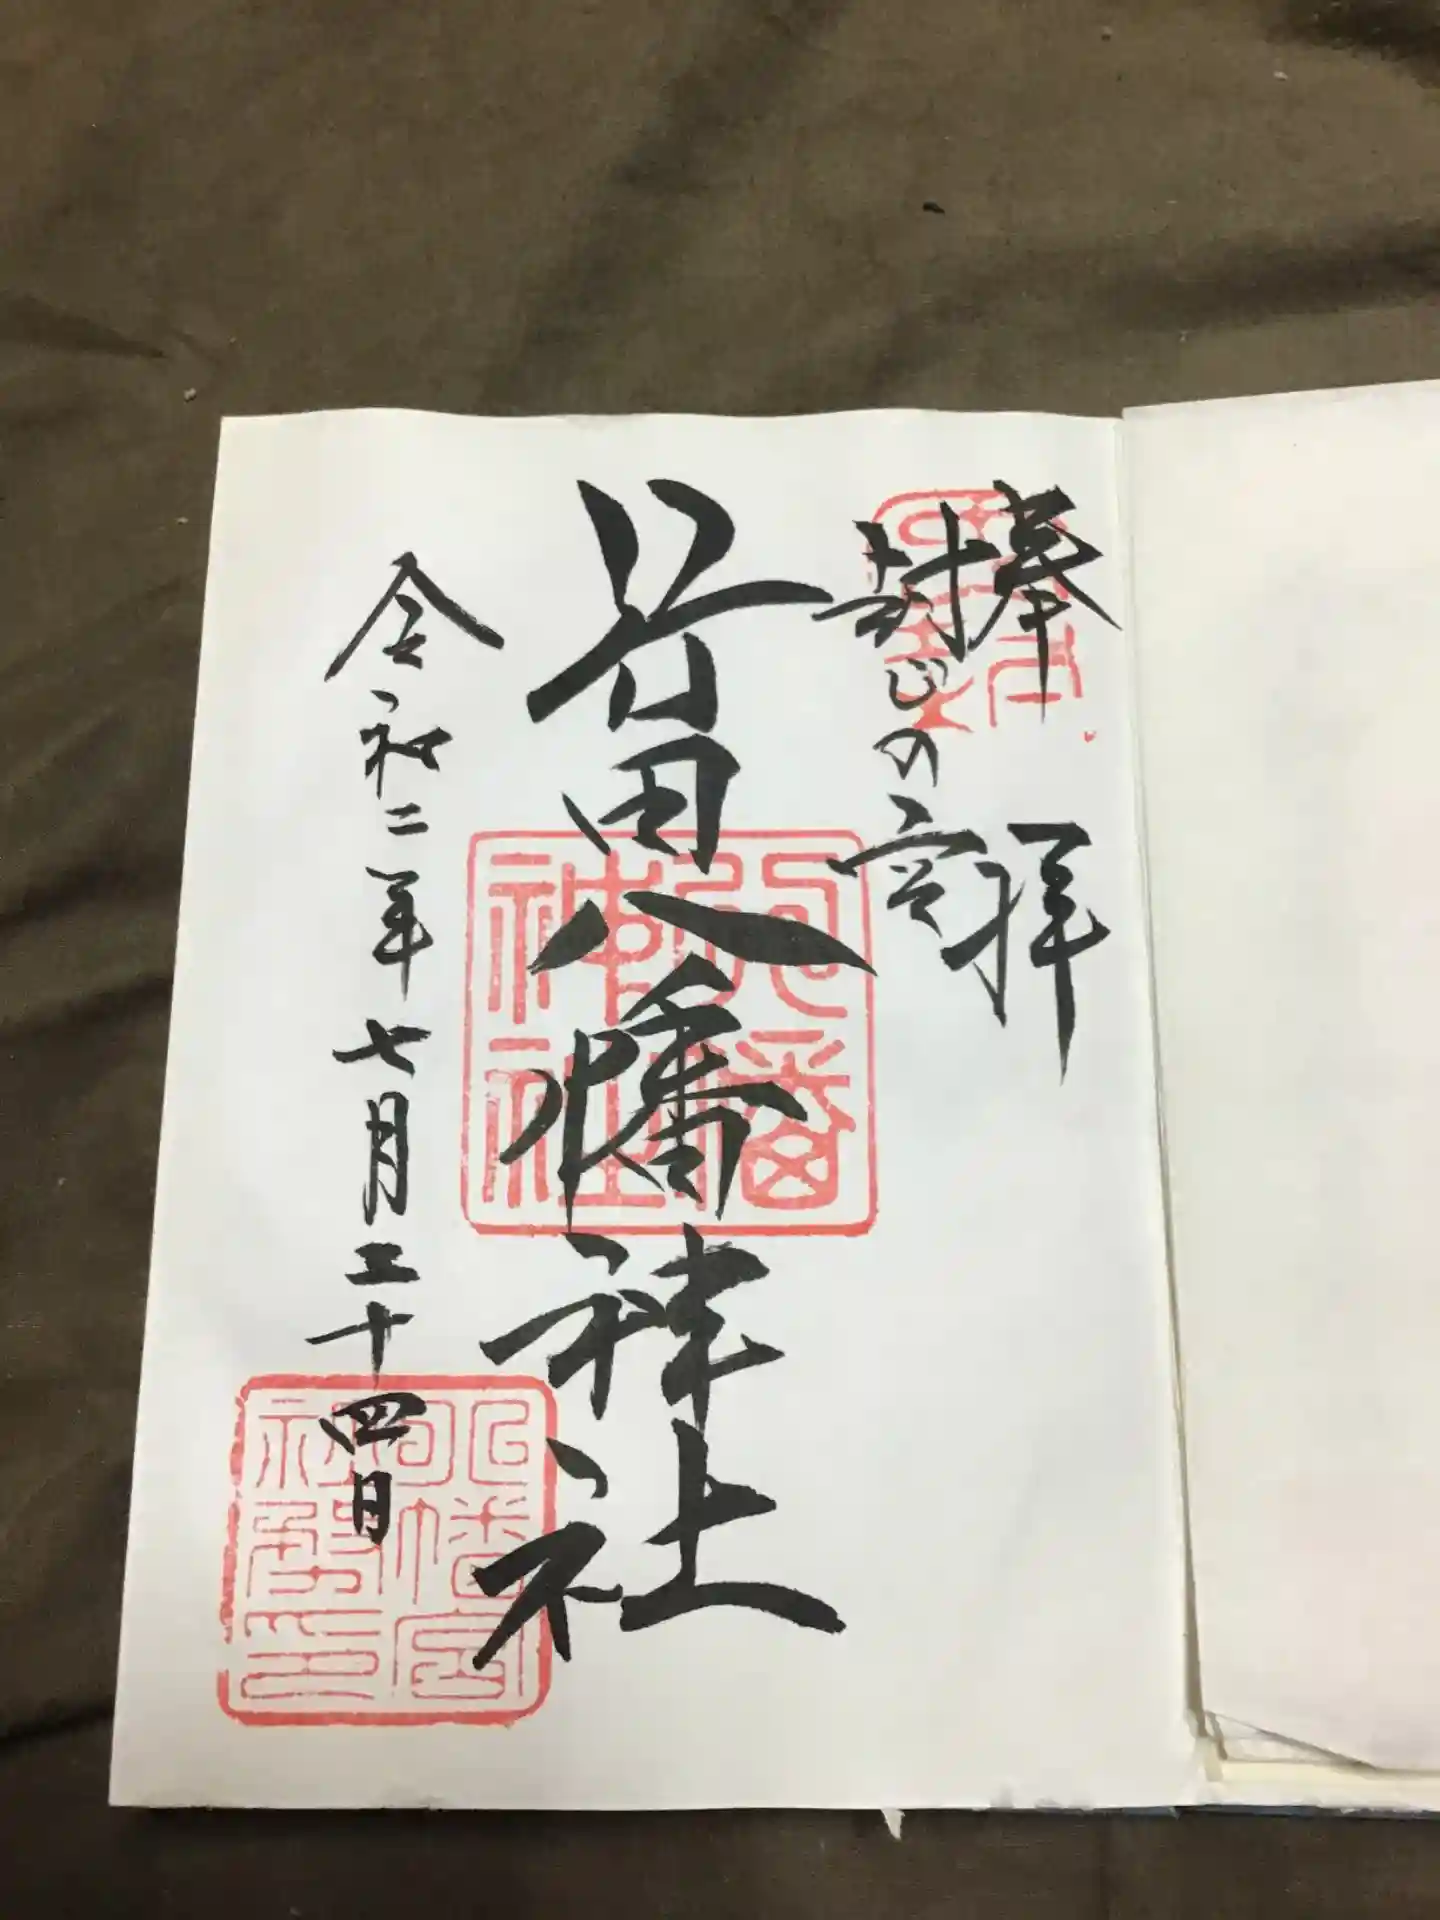 奉拝
封じの宮
田八幡神社
令和二年七月二十四日
八幡神社